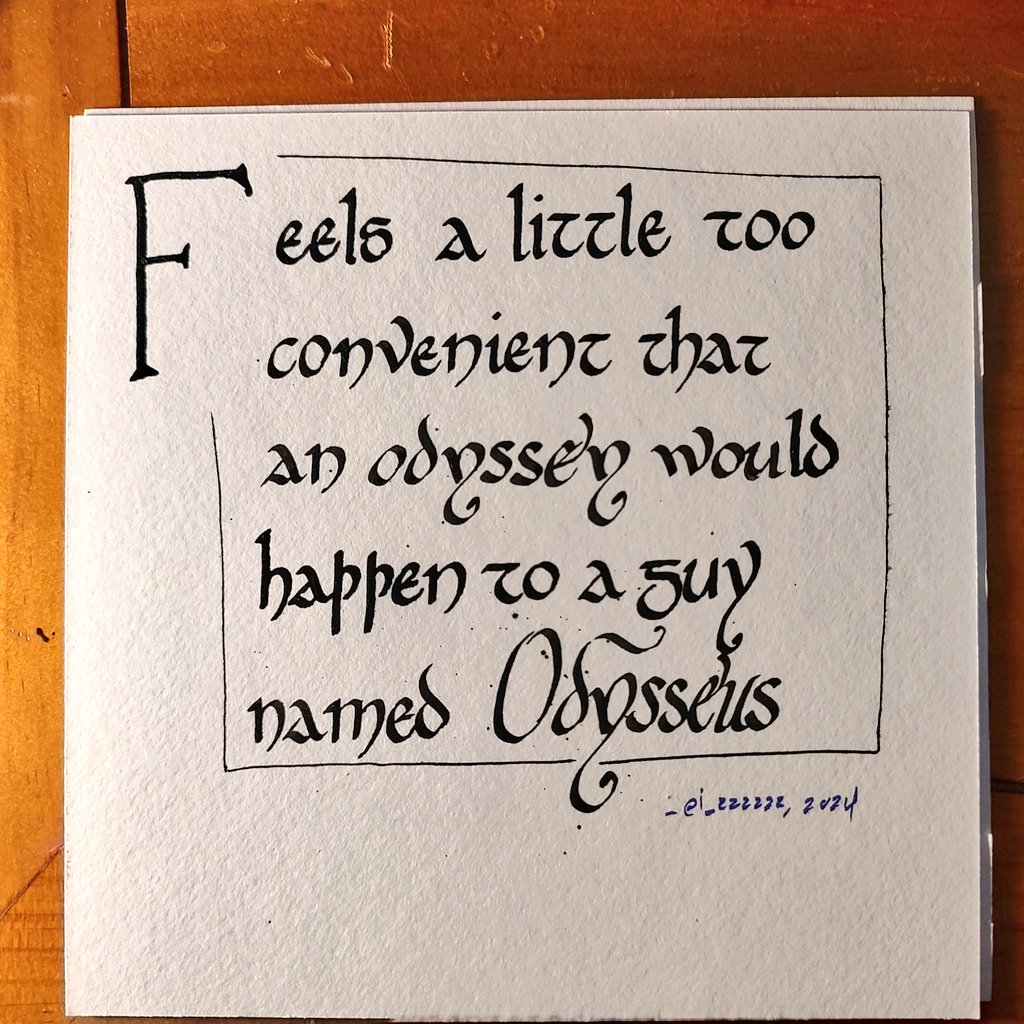 Feels a little too
convenient that
an odyssey would
happen to a guy
named Odysseus
-@i_zzzzzz, 2024